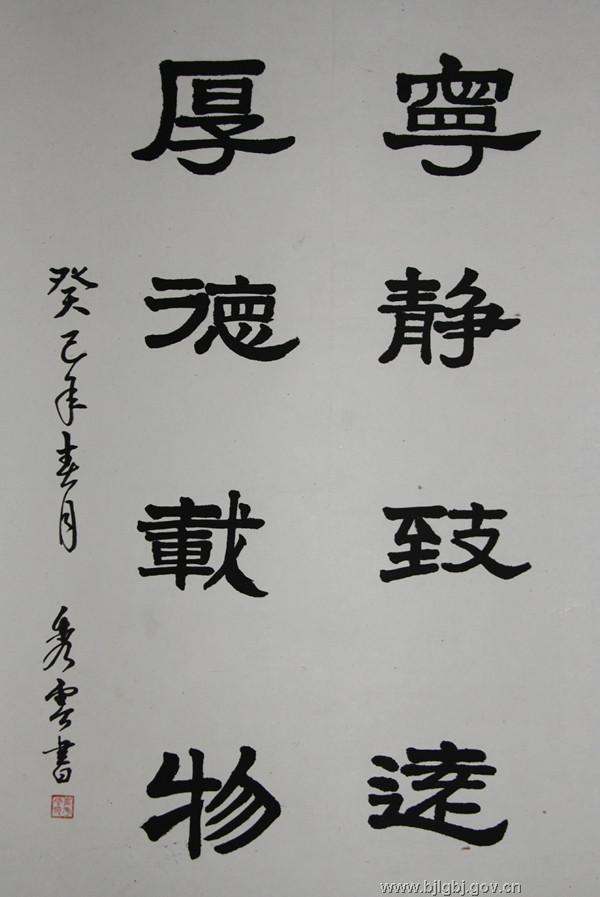 寧静致遠
厚德載物
癸巳年春月 秀雲書
www.bjlgbj.gov.cn